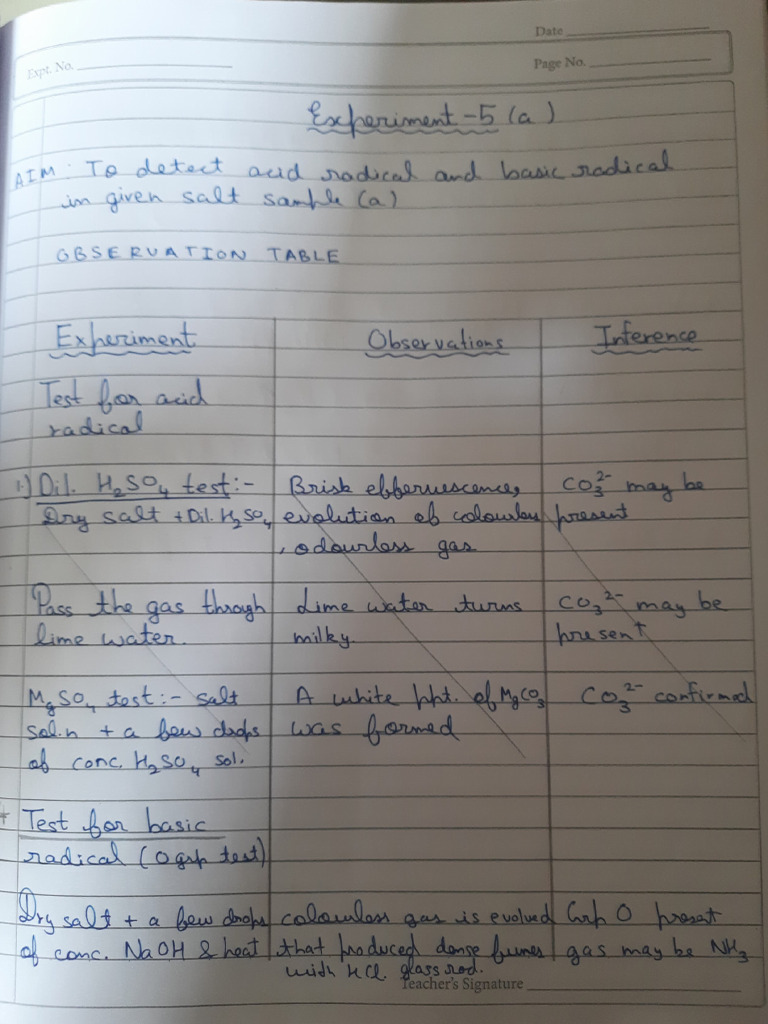 Date
Expt. No.
Page No.
Experiment-5 (a)
AIM: To detect acid radical and basic radical
in given salt sample (a)
OBSERVATION TABLE
Experiment Observations Inference
Test for acid
radical
1.) Dil. H₂SO₄ test:- Brisk effervescence, CO₃²⁻ may be
Dry salt + Dil. H₂SO₄ evolution of colourless present
, odourless gas
Pass the gas through Lime water turns CO₃²⁻ may be
lime water. milky. present
MgSO₄ test:- salt A white ppt. of MgCO₃ CO₃²⁻ confirmed
sol.n + a few drops was formed
of conc. H₂SO₄ sol.
Test for basic
radical (0 grp test)
Dry salt + a few drops colourless gas is evolved Grp 0 present
of conc. NaOH & heat that produced dense fumes gas may be NH₃
with HCl glass rod.
Teacher's Signature